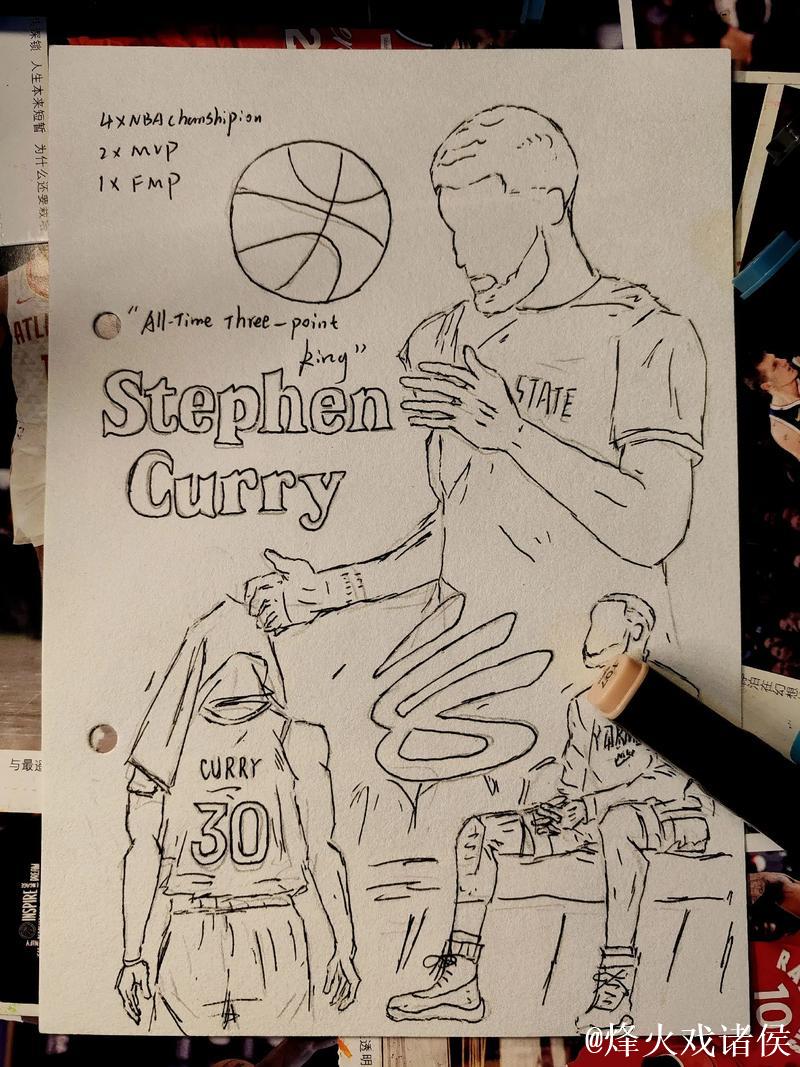 4xNBA chamshipion
2x MVP
1x FMP
"All-Time Three-point
king"
Stephen
Curry
STATE
CURRY
30
人生本来短暂 为什么还要栽
ATL
与最遥
INSPIRE
透明
10
@烽火戏诸侯